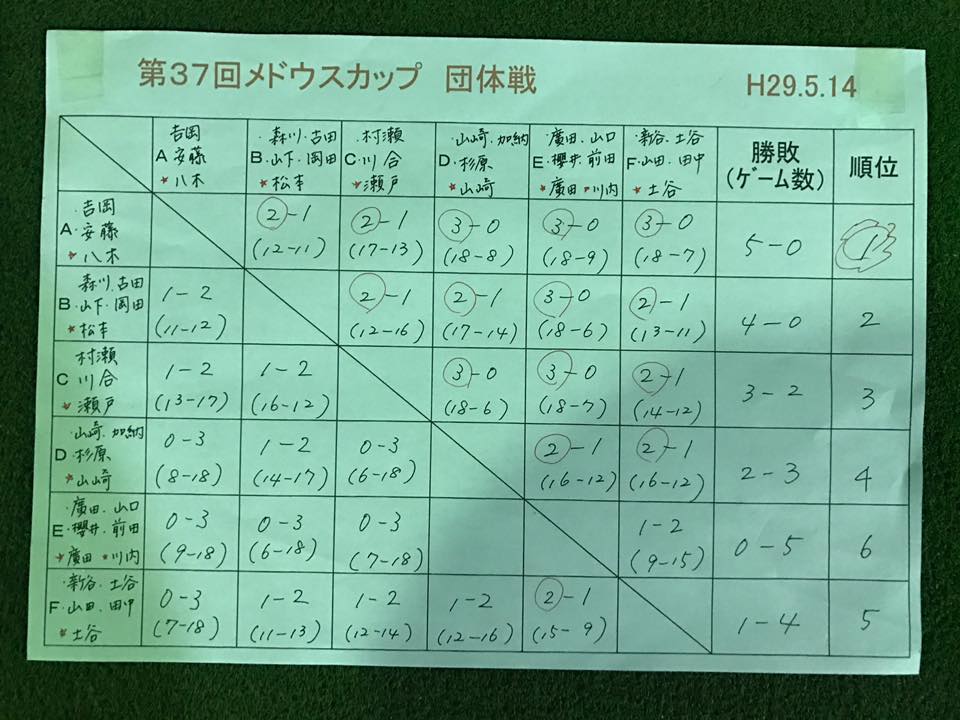 第37回メドウスカップ 団体戦 H29.5.14
吉岡 ・森川・古田 ・村瀬 ・山崎・加納 ・廣田・山口 ・新谷・土谷
A 安藤 B・山下・岡田 C・川合 D・杉原 E・櫻井・前田 F・山田・田中 勝敗(ゲーム数) 順位
★八木 ★松本 ★瀬戸 ★山崎 ★廣田 ★川内 ★土谷
・吉岡 ②-1 ②-1 ③-0 ③-0 ③-0
A・安藤 5-0 1
★八木 (12-11) (17-13) (18-8) (18-9) (18-7)
森川・古田 1-2 ②-1 ②-1 ③-0 ②-1
B・山下・岡田 4-0 2
★松本 (11-12) (12-16) (17-14) (18-6) (13-11)
村瀬 1-2 1-2 ③-0 ③-0 ②-1
C 川合 3-2 3
★瀬戸 (13-17) (16-12) (18-6) (18-7) (14-12)
・山崎・加納 0-3 1-2 0-3 ②-1 ②-1
D・杉原 2-3 4
★山崎 (8-18) (14-17) (6-18) (16-12) (16-12)
・廣田・山口 0-3 0-3 0-3 1-2
E・櫻井・前田 0-5 6
★廣田 ★川内 (9-18) (6-18) (7-18) (9-15)
・新谷・土谷 0-3 1-2 1-2 1-2 ②-1
F・山田・田中 1-4 5
★土谷 (7-18) (11-13) (12-14) (12-16) (15-9)